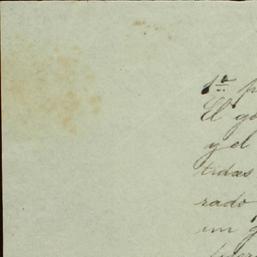 1ª p
El go
y el
tidas
rado
un g